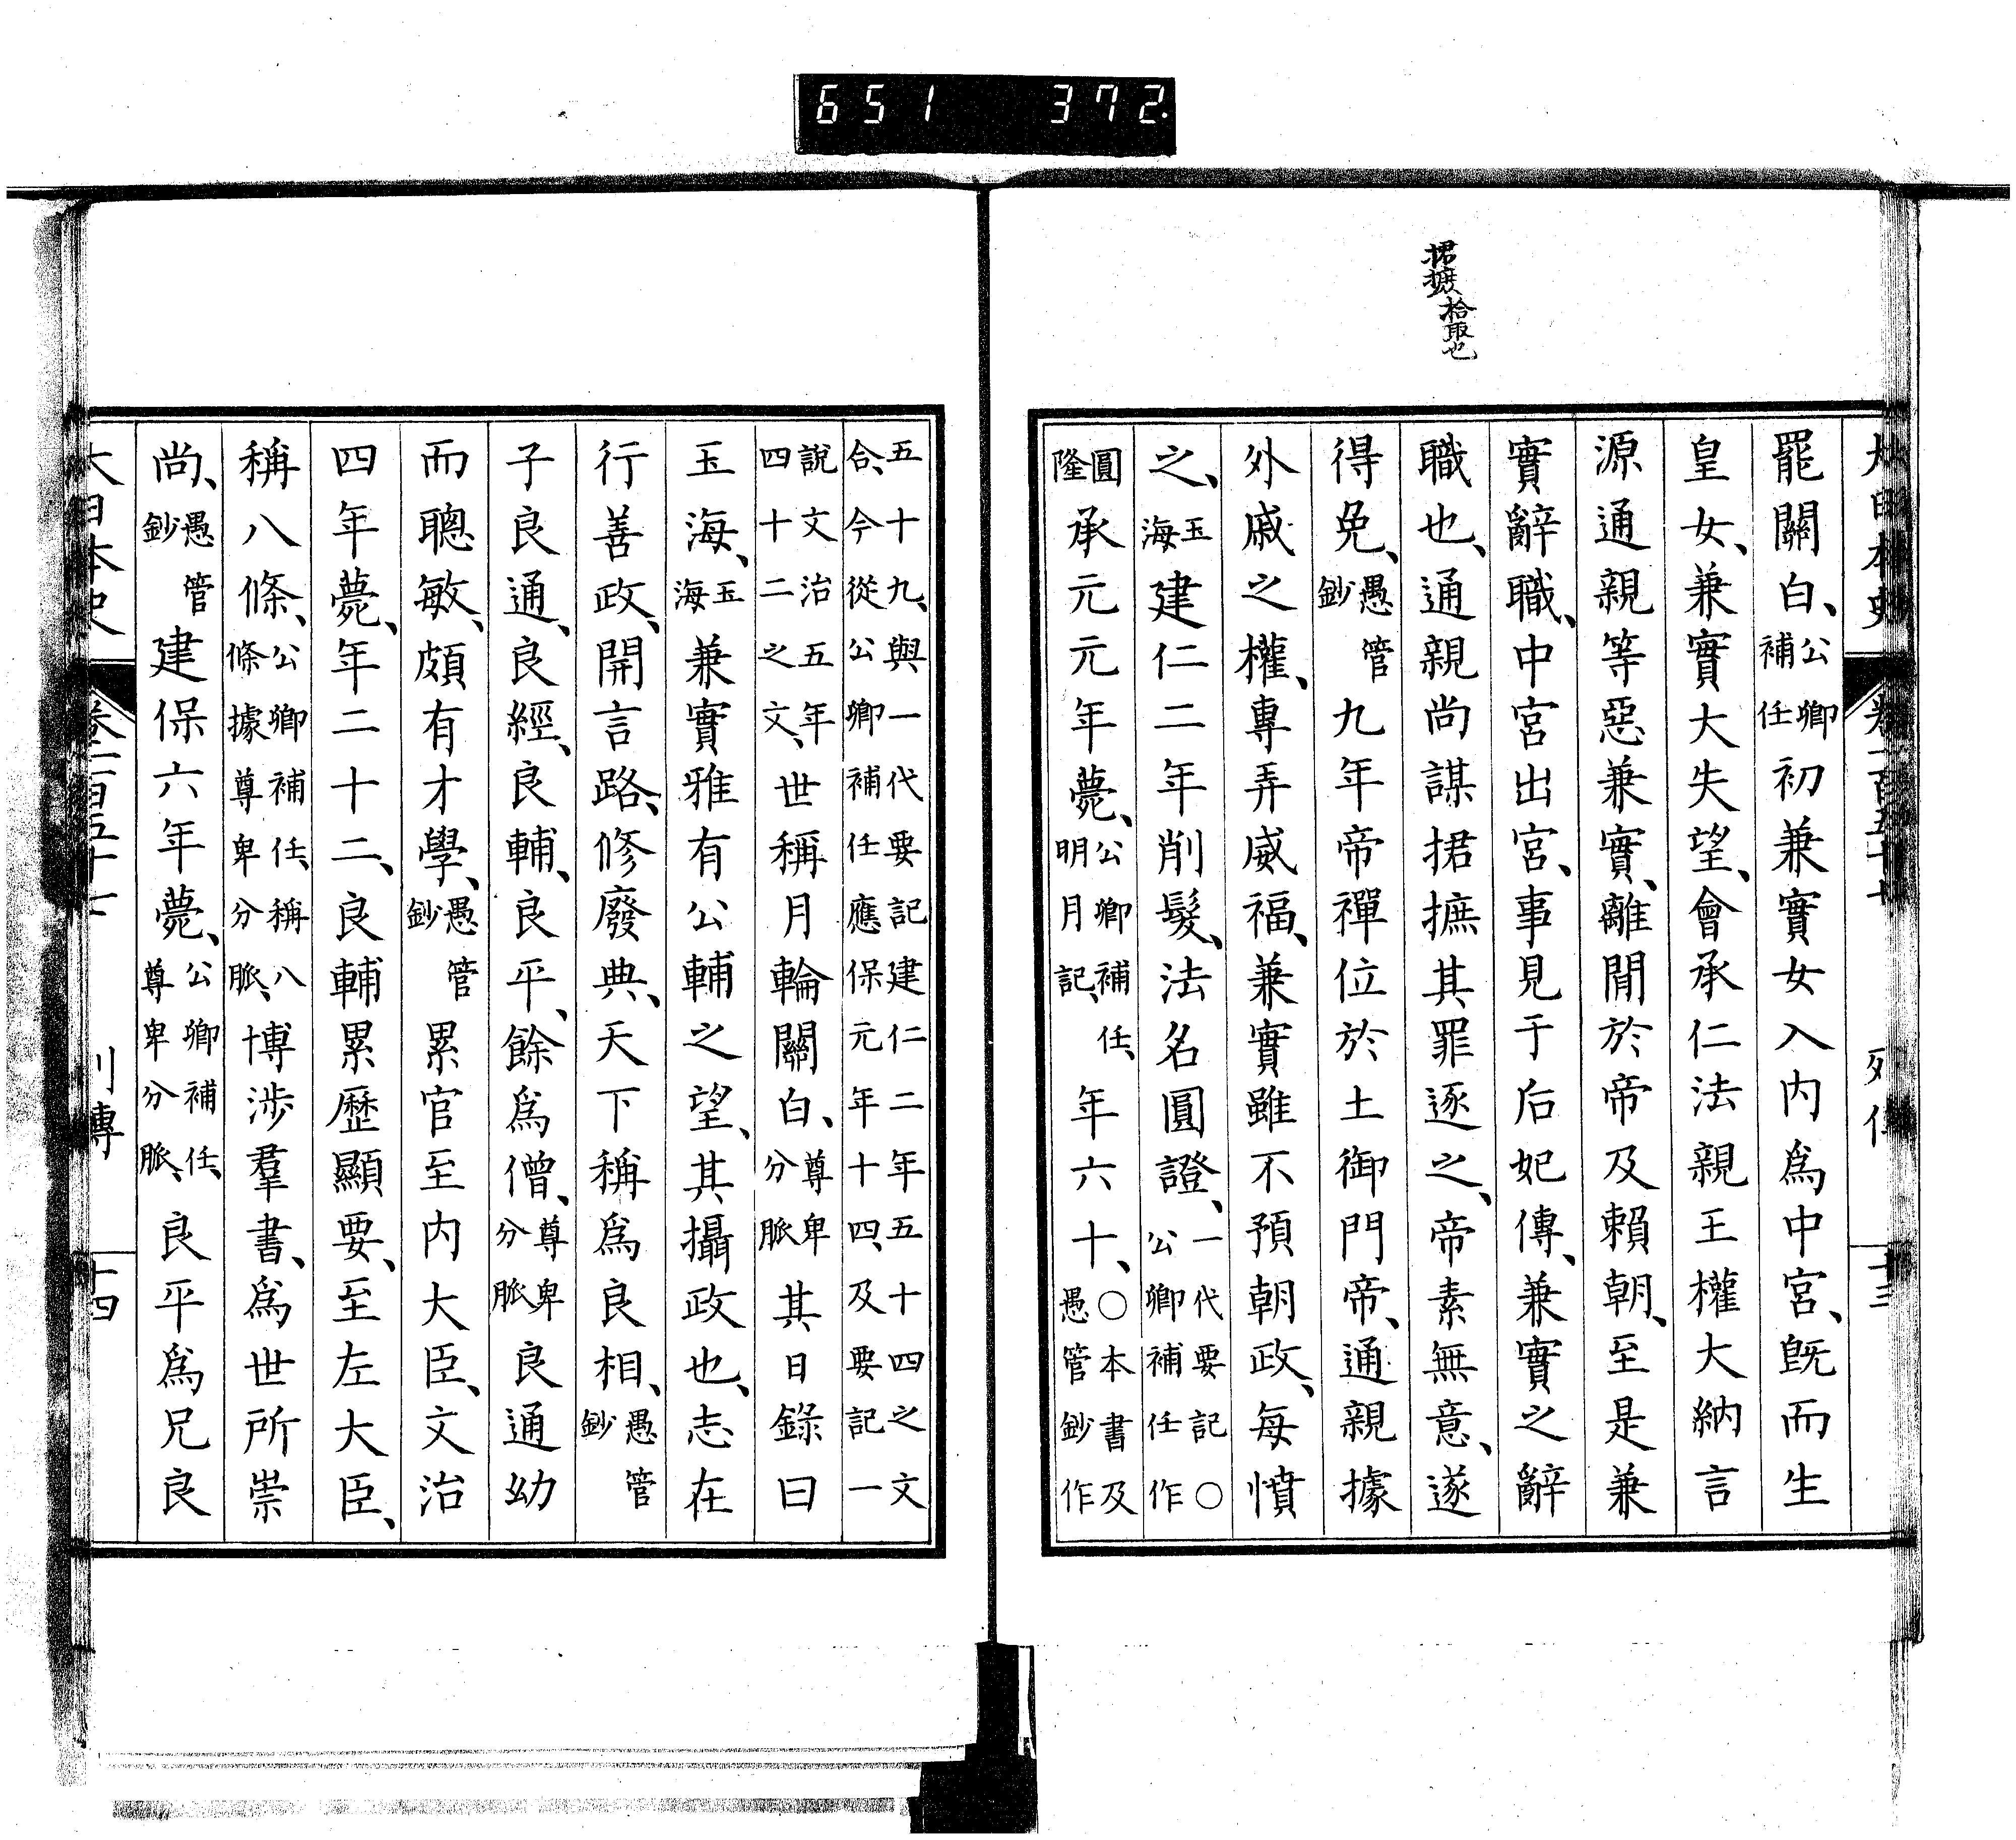 651 372.
捃摭拾取也
大日本史 卷一百五十七 列傳 十三
罷關白、公卿補任初兼實女入内爲中宮、既而生
皇女、兼實大失望、會承仁法親王權大納言
源通親等惡兼實、離間於帝及賴朝、至是兼
實辭職、中宮出宮、事見于后妃傳、兼實之辭
職也、通親尚謀捃摭其罪逐之、帝素無意、遂
得免、愚管鈔九年帝禪位於土御門帝、通親據
外戚之權、專弄威福、兼實雖不預朝政、每憤
之、玉海建仁二年削髮、法名圓證、一代要記○公卿補任作
圓隆承元元年薨、公卿補任、明月記、年六十、○本書及愚管鈔作
五十九、與一代要記建仁二年五十四之文合、今從公卿補任應保元年十四、及要記一
説文治五年四十二之文、世稱月輪關白、尊卑分脈其日錄曰
玉海、玉海兼實雅有公輔之望、其攝政也、志在
行善政、開言路、修廢典、天下稱爲良相、愚管鈔
子良通、良經、良輔、良平、餘爲僧、尊卑分脈良通幼
而聰敏、頗有才學、愚管鈔累官至内大臣、文治
四年薨、年二十二、良輔累歷顯要、至左大臣、
稱八條、公卿補任、稱八條據尊卑分脈、博涉羣書、爲世所崇
尚、愚管鈔建保六年薨、公卿補任、尊卑分脈、良平爲兄良
大日本史 卷一百五十七 列傳 十四